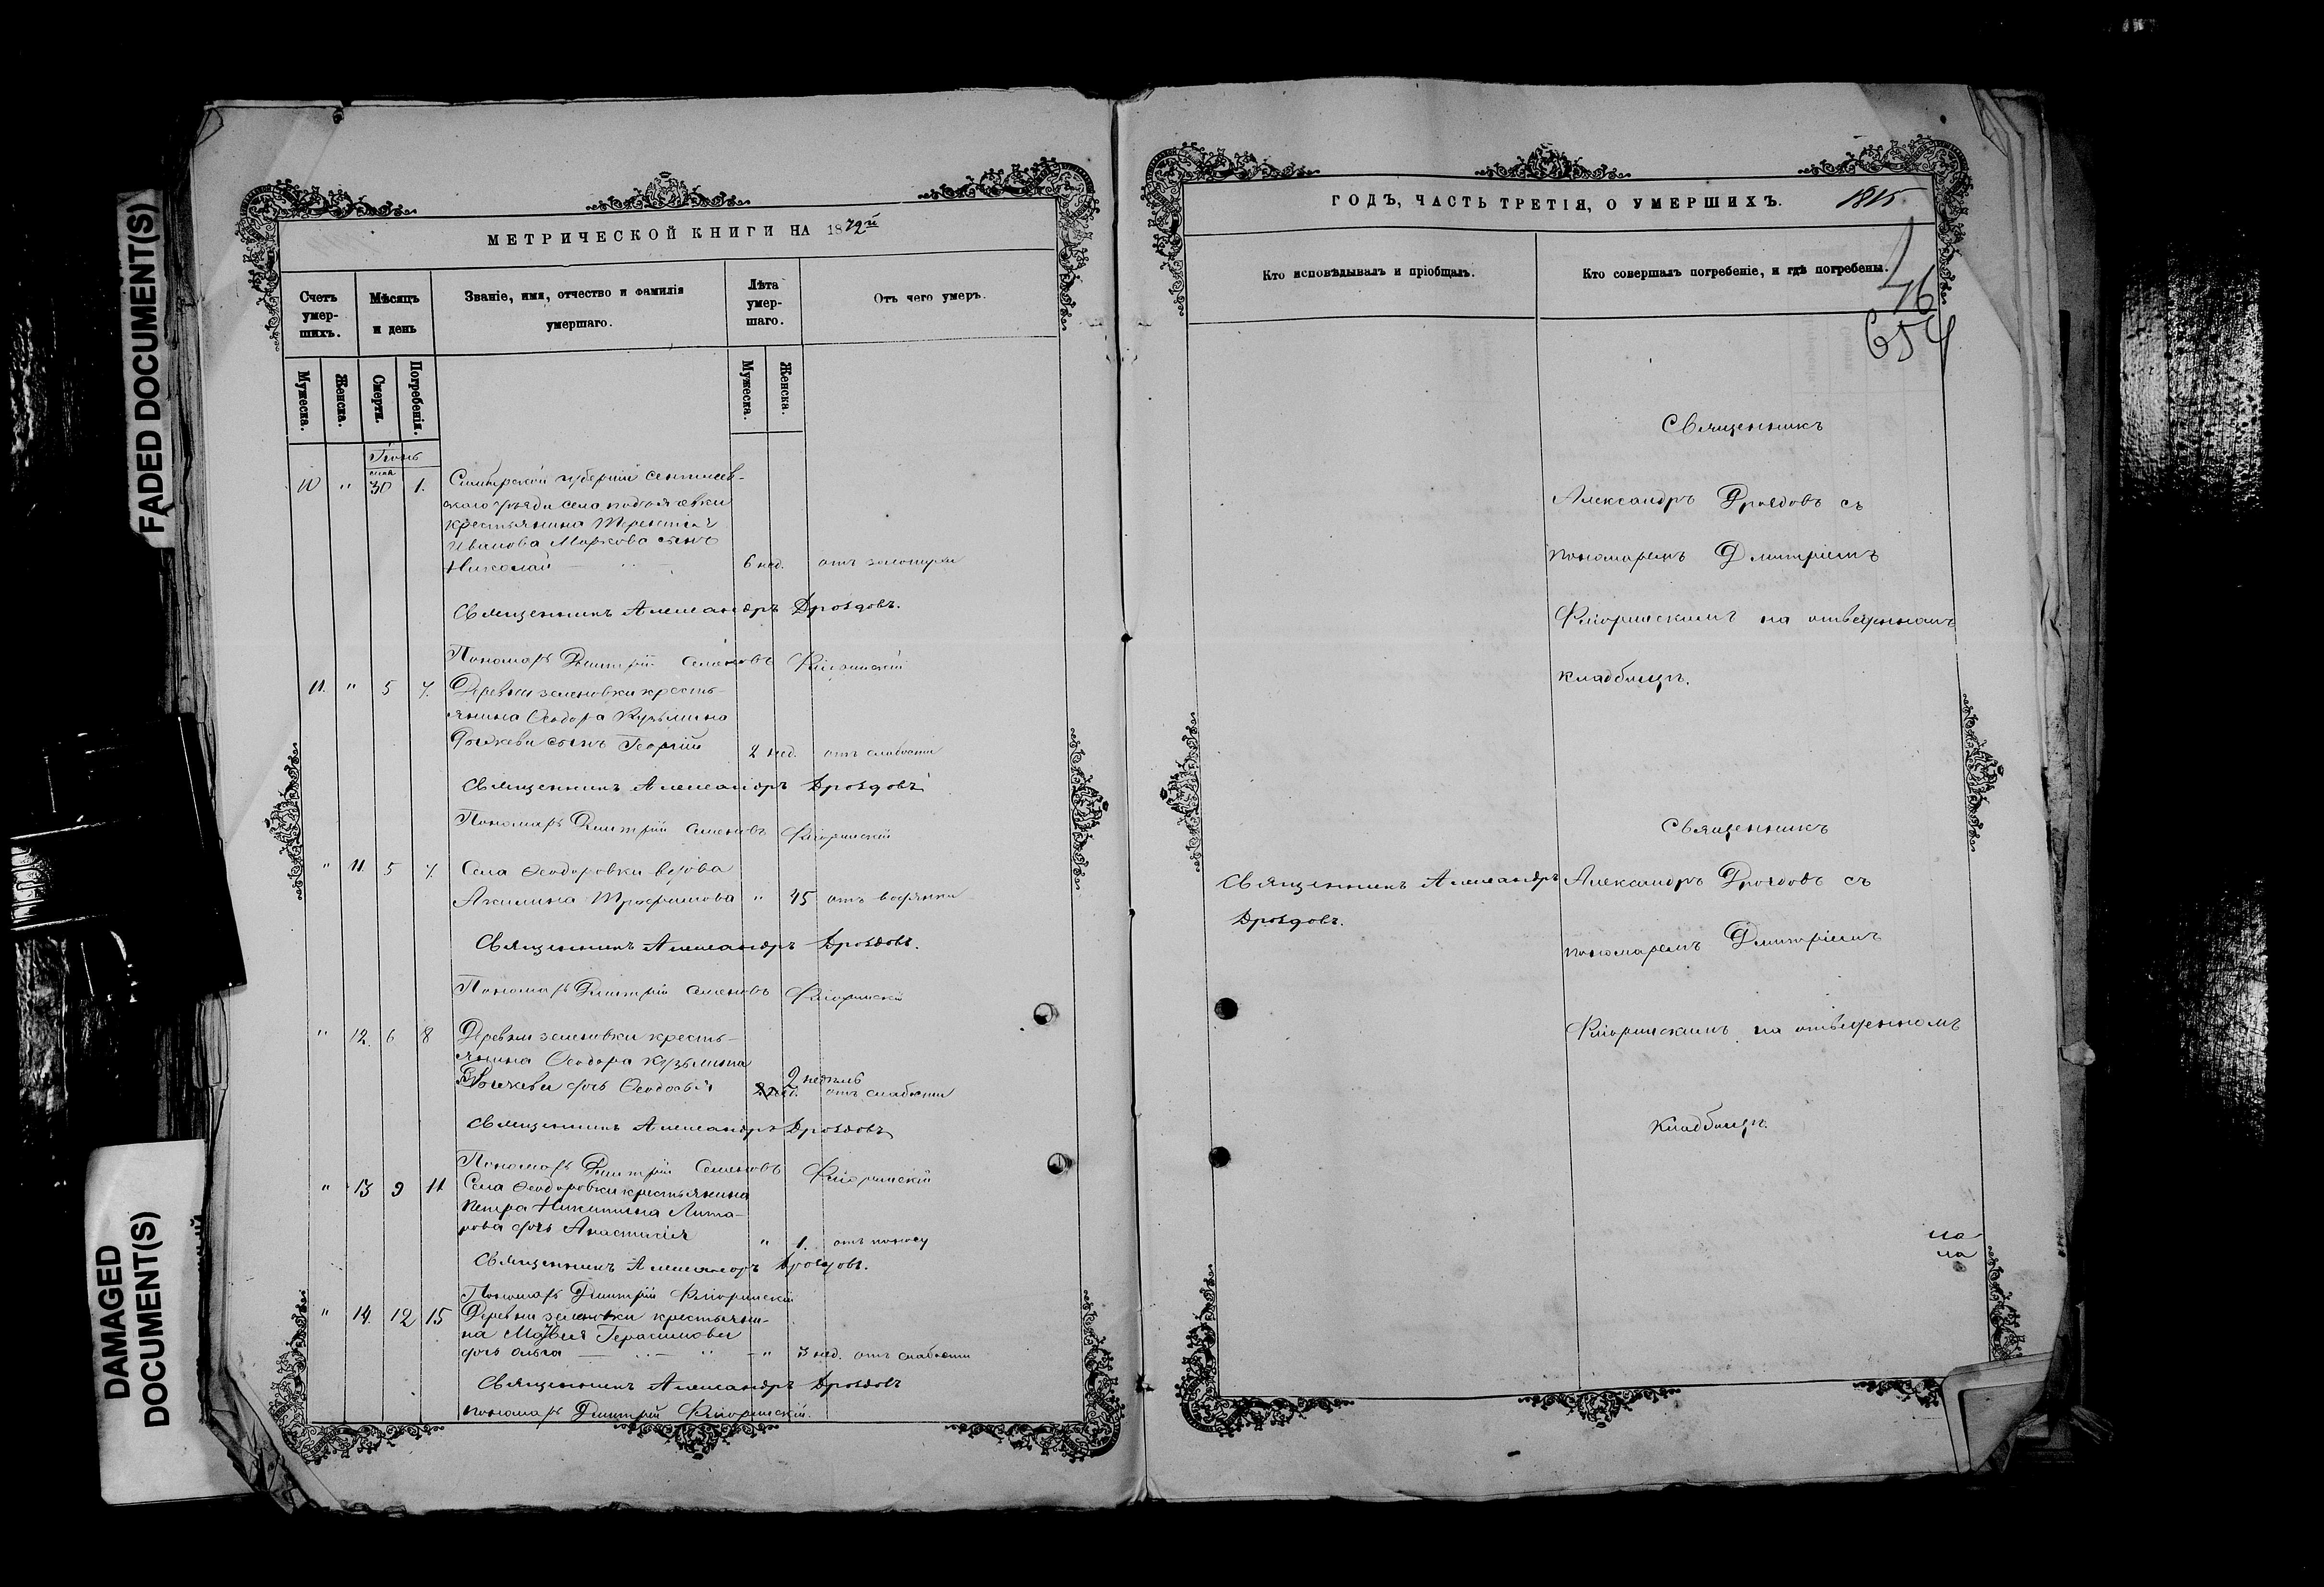 FADED DOCUMENT(S)
DAMAGED
DOCUMENT(S)
МЕТРИЧЕСКОЙ КНИГИ НА 1872й
Счетъ умер-шихъ.
Мѣсяцъ и день
Званіе, имя, отчество и фамилія умершаго.
Лѣта умер-шаго.
Отъ чего умеръ.
Мужеска.
Женска.
Смерти.
Погребенія.
Мужеска.
Женска.
Іюнь
мая
10 " 30 1. Симбирской губерніи Сенгилеев-
скаго уѣзда села
крестьянина Терентія
Иванова Маркова сынъ
Николай 6 нед. отъ золотухи
Священникъ Александръ Дроздовъ.
Пономарь Димитрій Семеновъ Фліоринскій
11. " 5 7. Деревни зеленовки кресть-
янина Ѳеодора Кузьмина
сынъ Георгій 2 нед. отъ слабости
Священникъ Александръ Дроздовъ
Пономарь Димитрій Семеновъ Фліоринскій
" 11. 5 7. Села Ѳеодоровки вдова
Акилина Трофимова " 45 отъ водянки
Священникъ Александръ Дроздовъ.
Пономарь Димитрій Семеновъ Фліоринскій
" 12. 6 8 Деревни зеленовки кресть-
янина Ѳеодора Кузьмина
дочь Ѳеодосія 2 недѣль отъ слабости
Священникъ Александръ Дроздовъ
Пономарь Димитрій Семеновъ Фліоринскій
" 13 9 11 Села Ѳеодоровки крестьянина
Петра Никитина
дочь Анастасія " 1. отъ поносу
Священникъ Александръ Дроздовъ.
Пономарь Димитрій Фліоринскій
" 14. 12 15 Деревни зеленовки крестьяни-
на Матвея Герасимова
дочь Ольга " 3 нед. отъ слабости
Священникъ Александръ Дроздовъ
пономарь Димитрій Фліоринскій.
ГОДЪ, ЧАСТЬ ТРЕТІЯ, О УМЕРШИХЪ.
Кто исповѣдывалъ и пріобщалъ.
Кто совершалъ погребеніе, и гдѣ погребены.
654
Священникъ
Александръ Дроздовъ съ
пономаремъ Димитріемъ
Фліоринскимъ на отведенномъ
кладбищѣ.
Священникъ
Священникъ Александръ
Дроздовъ.
Александръ Дроздовъ съ
пономаремъ Димитріемъ
Фліоринскимъ на отведенномъ
кладбищѣ.
на
на